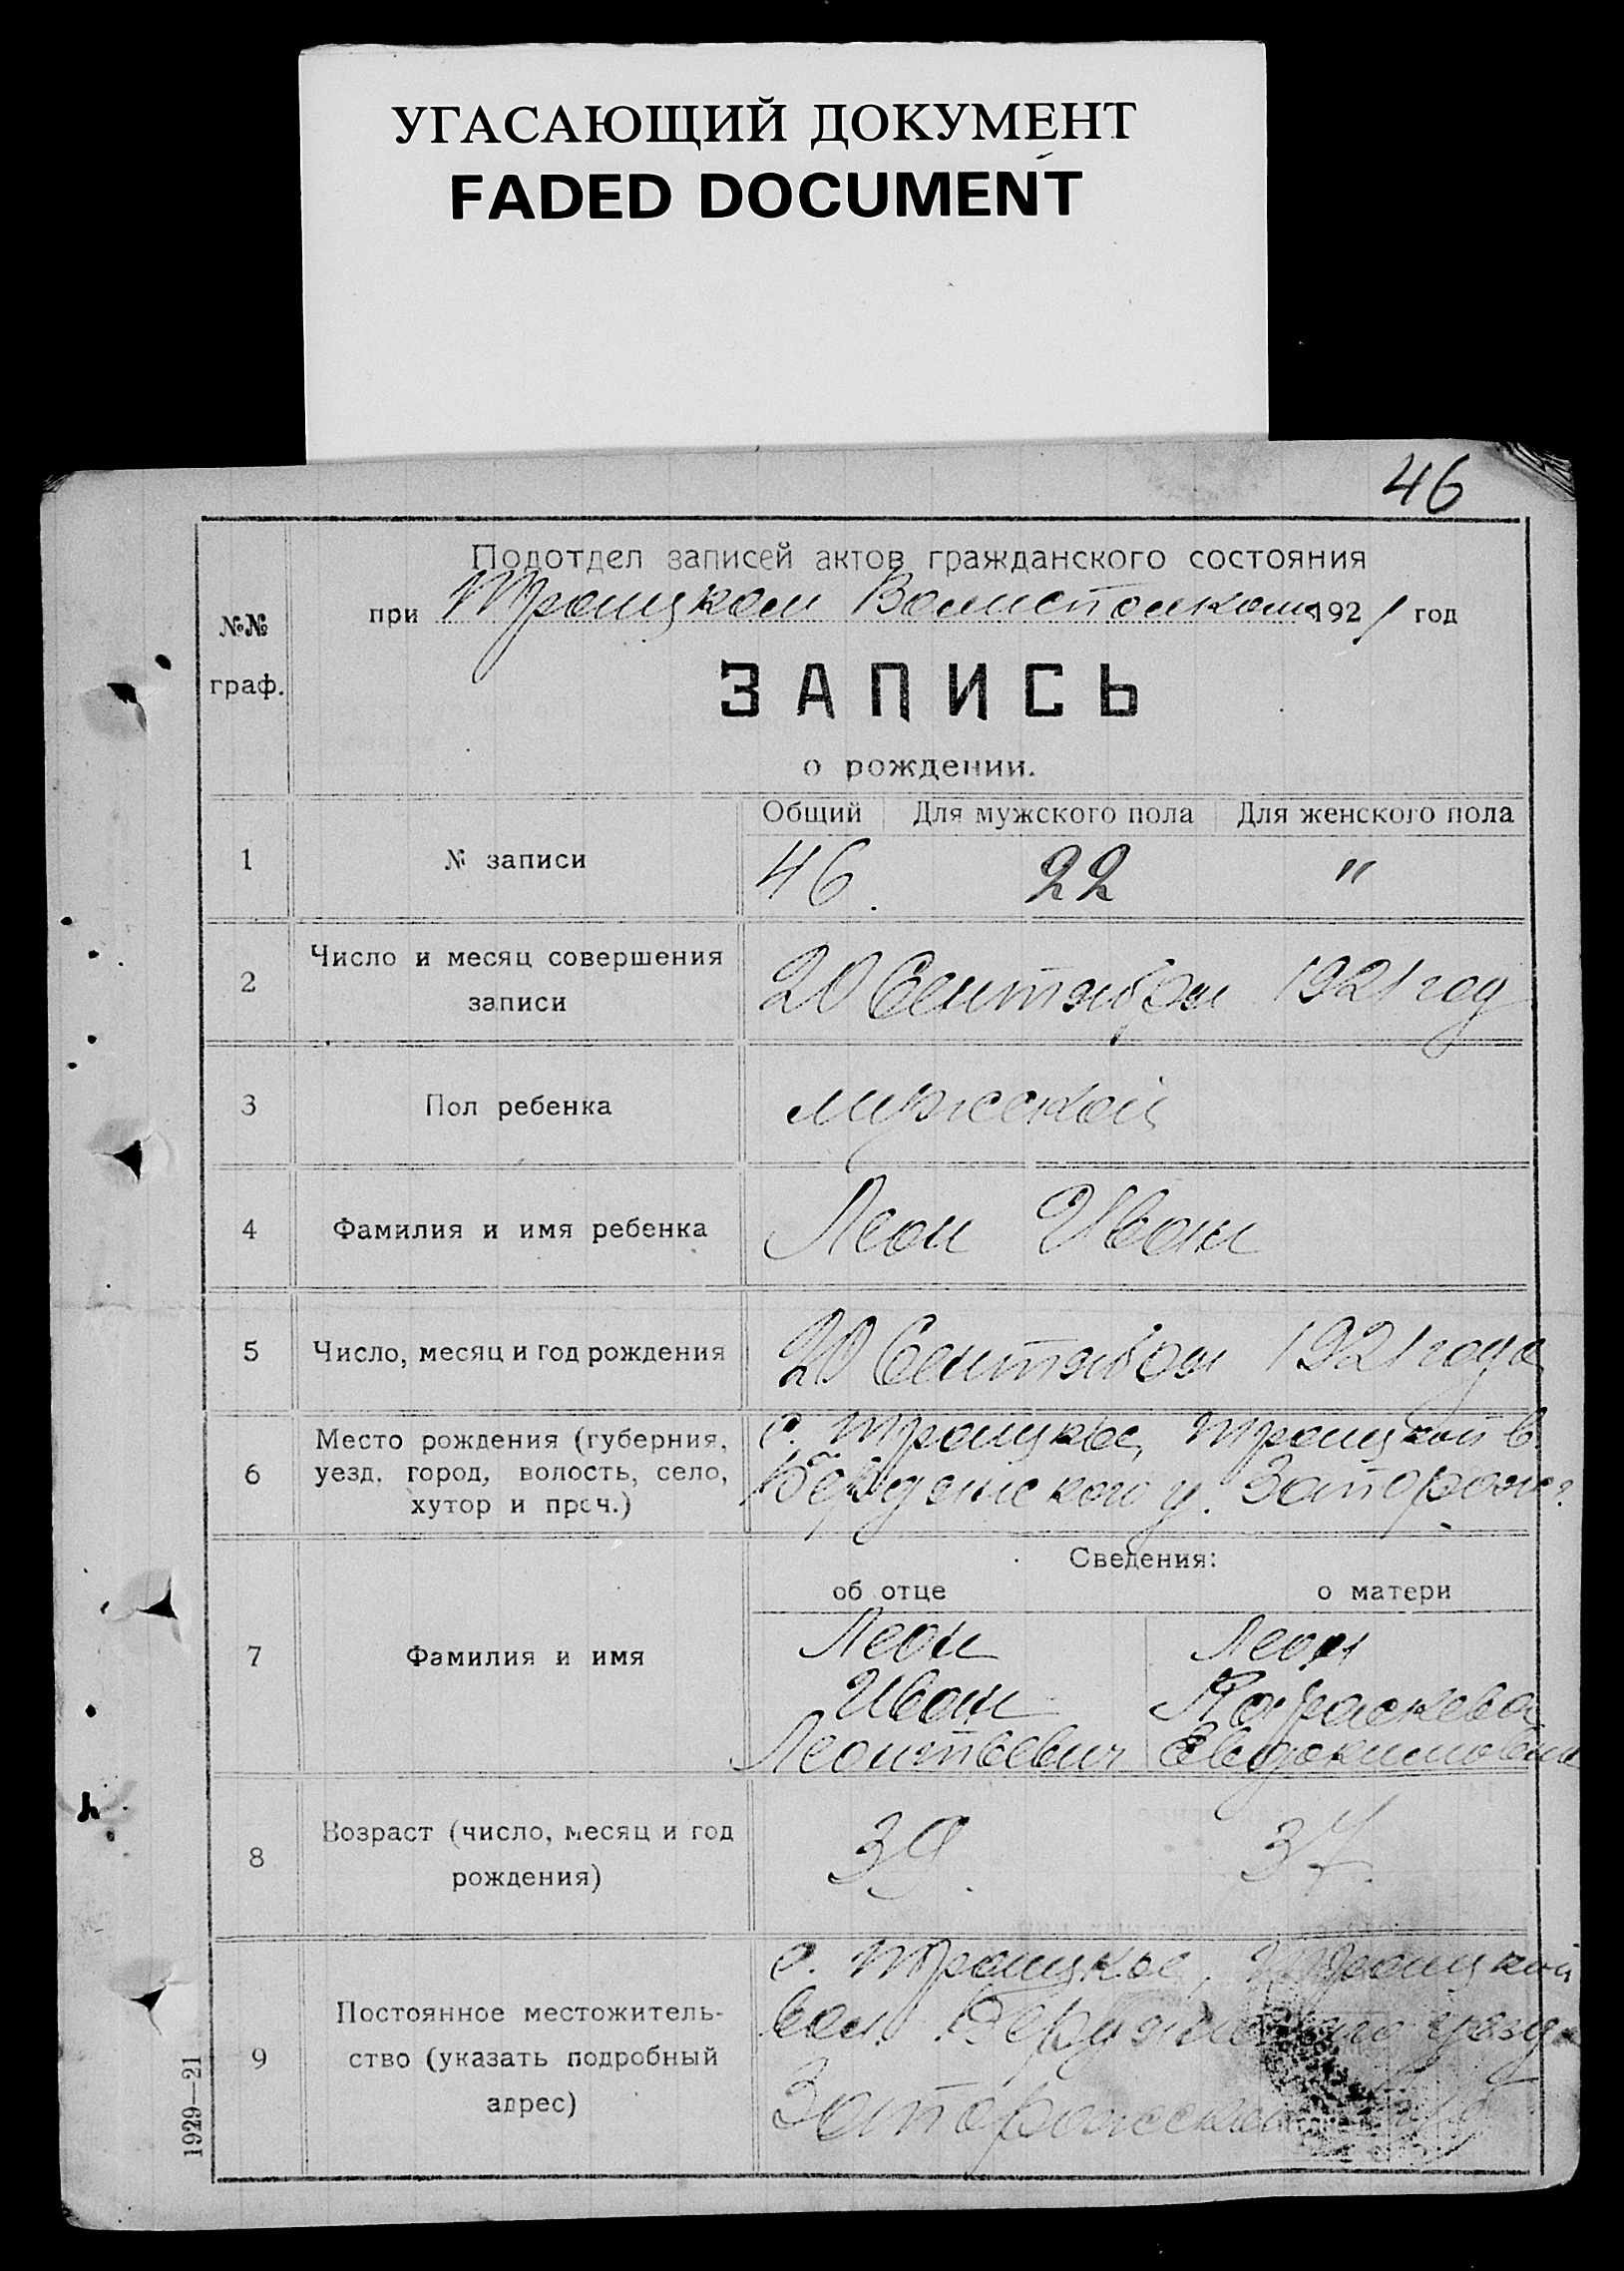 УГАСАЮЩИЙ ДОКУМЕНТ
FADED DOCUMENT
46
Подотдел записей актов гражданского состояния
при Троицком Волисполкоме 1921 год
№№
граф.
ЗАПИСЬ
о рождении.
Общий Для мужского пола Для женского пола
1 № записи 46. 22 "
2 Число и месяц совершения
записи 20 Сентября 1921 год
3 Пол ребенка мужской
4 Фамилия и имя ребенка Леон Иван
5 Число, месяц и год рождения 20 Сентября 1921 года
6 Место рождения (губерния,
уезд, город, волость, село,
хутор и проч.)
с. Троицкое, Троицкой в.
Бердянского у. Запорож. г.
Сведения:
об отце о матери
7 Фамилия и имя
Леон Леон
Иван Параскева
Леонтьевич Евдокимовна
8 Возраст (число, месяц и год
рождения) 39. 37.
9 Постоянное местожитель-
ство (указать подробный
адрес)
с. Троицкое, Троицкой
вол. Бердянского уезда
Запорожской
1929—21